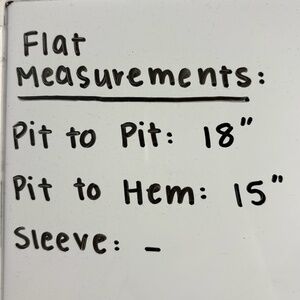 Flat
Measurements:
Pit to Pit: 18"
Pit to Hem: 15"
Sleeve: -